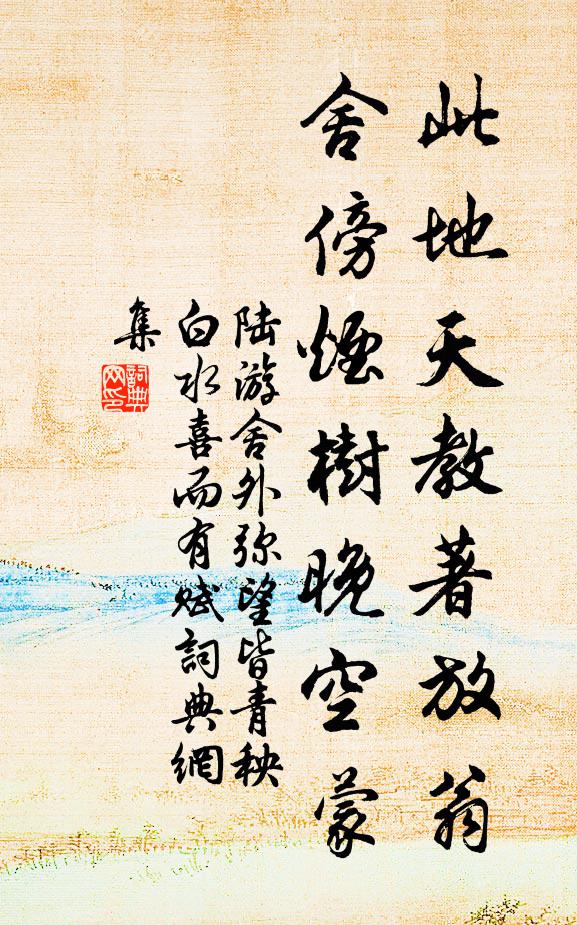 此地天教著放翁
舍傍煙樹晚空蒙
陆游舍外弥望皆青秧
白水喜而有赋詞典網
集
詞典
网印